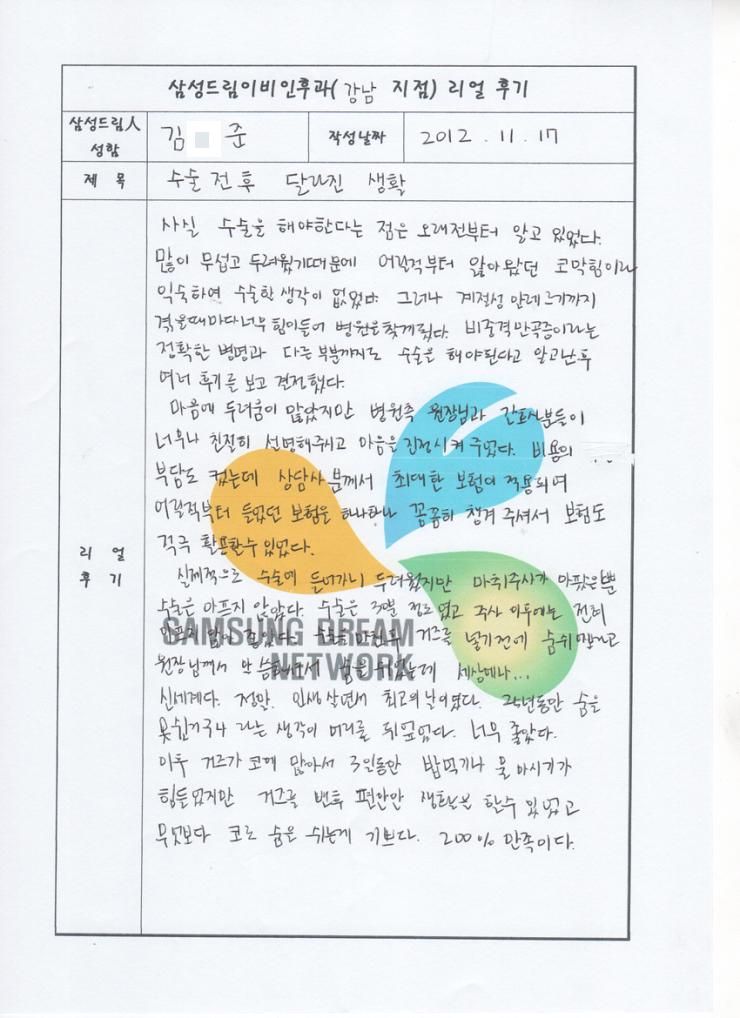 삼성드림이비인후과(강남 지점) 리얼 후기
삼성드림人 성함
김 준
작성날짜
2012 . 11 . 17
제 목
수술 전 후 달라진 생활
리 얼 후 기
사실 수술을 해야한다는 점은 오래전부터 알고 있었다.
많이 무섭고 두려웠기때문에 어릴적부터 앓아왔던 코막힘이라
익숙하여 수술할 생각이 없었다. 그러나 계절성 알레르기까지
겪을때마다 너무 힘이들어 병원을 찾게됬다. 비중격만곡증이라는
정확한 병명과 다른 부분까지도 수술을 해야된다고 알고난후
여러 후기를 보고 결정했다.
마음에 두려움이 많았지만 병원측 원장님과 간호사분들이
너무나 친절히 설명해주시고 마음을 진정시켜 주었다. 비용의
부담도 컸는데 상담사분께서 최대한 보험이 적용되며
어릴적부터 들었던 보험을 하나하나 꼼꼼히 챙겨 주셔서 보험도
적극 활용할수 있었다.
실제적으로 수술에 들어가니 두려웠지만 마취주사가 아팠을뿐
수술은 아프지 않았다. 수술은 30분 정도였고 주사 이후에는 전혀
아프지 않아 좋았다. 거즈를 넣기전에 숨쉬
원장님께서 말씀하셔서 숨을 쉬었는데 세상에나...
신세계다. 정말. 인생 살면서 최고의 날이였다. 24년동안 숨을
못쉰거구나 라는 생각이 머리를 뒤엎었다. 너무 좋았다.
이후 거즈가 코에 많아서 3일동안 밥먹기나 물 마시기가
힘들었지만 거즈를 뺀후 편안한 생활을 할수 있었고
무엇보다 코로 숨을 쉬는게 기쁘다. 200% 만족이다.
SAMSUNG DREAM
NETWORK